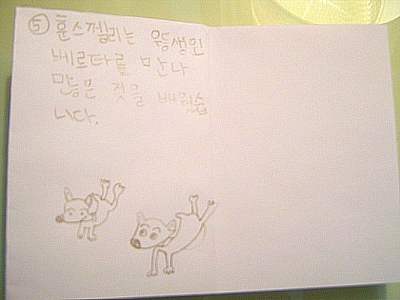 ⑤ 훈스껠리는 우등생인
베르타를 만나
많은 것을 배웠습
니다.